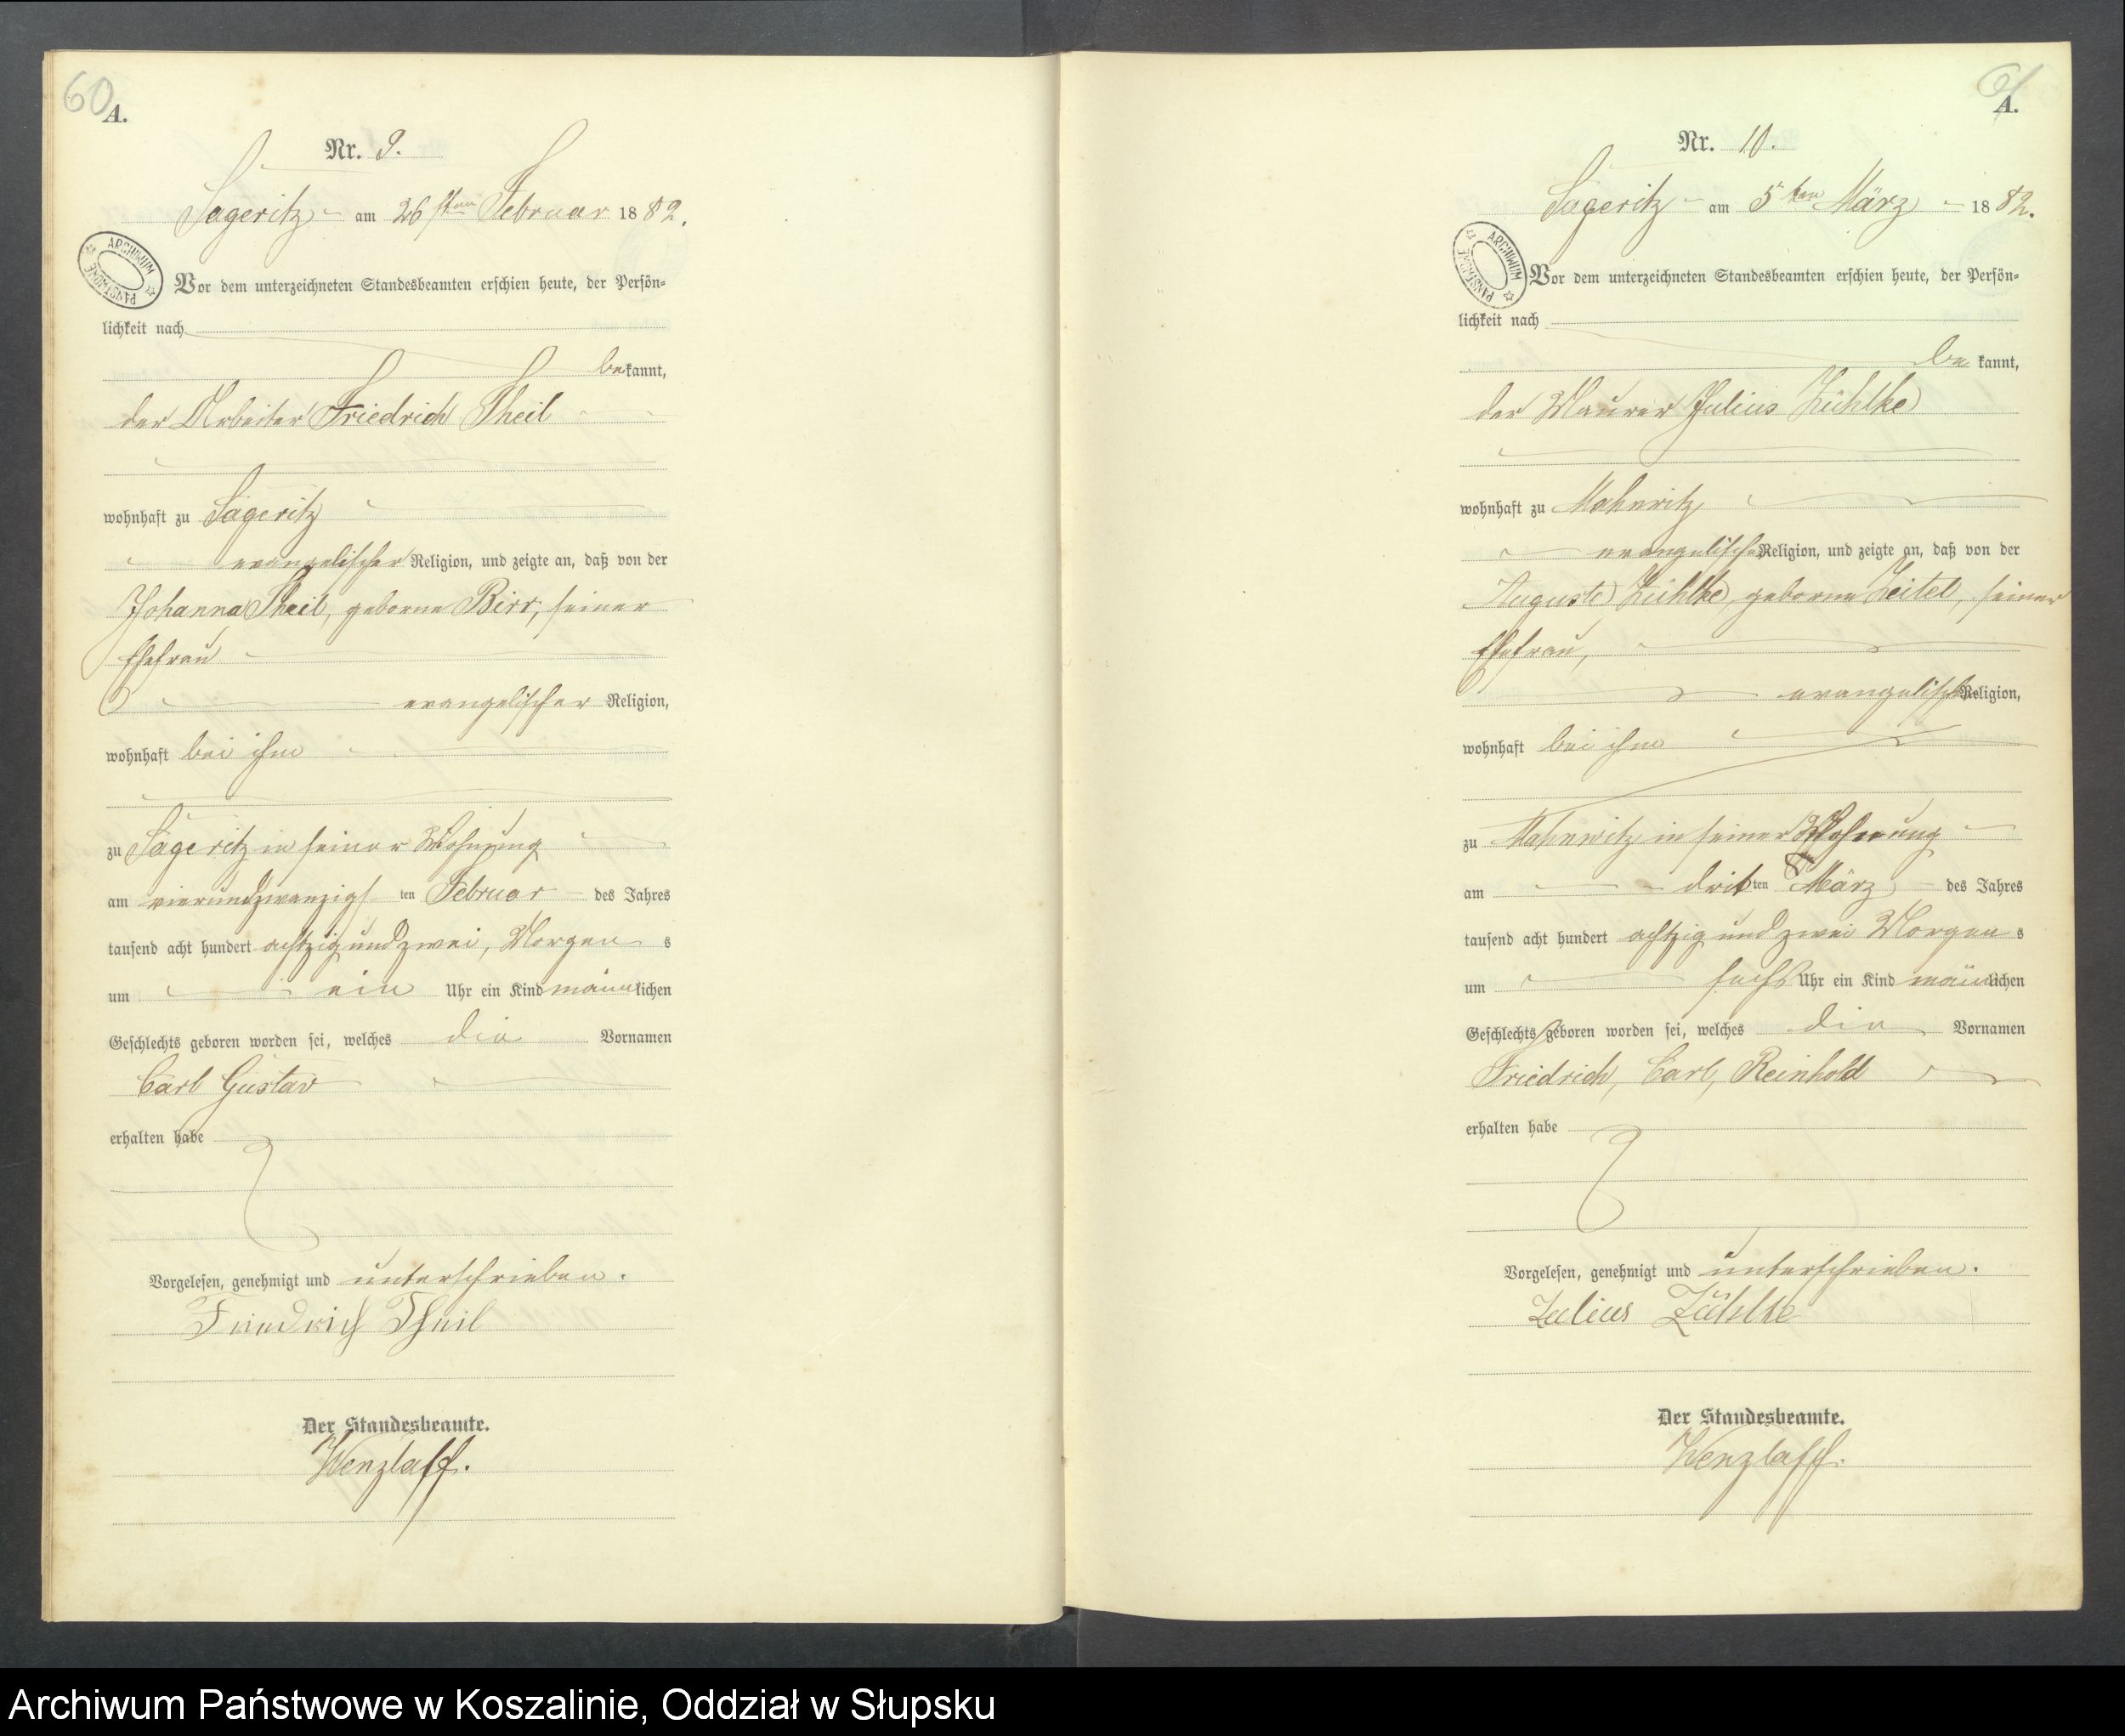 60
A.
Nr. 9.
Sageritz am 26sten Februar 1882.
ARCHIWUM PAŃSTWOWE
Vor dem unterzeichneten Standesbeamten erschien heute, der Persön=
lichkeit nach
bekannt,
der Arbeiter Friedrich Theil
wohnhaft zu Sageritz
evangelischer Religion, und zeigte an, daß von der
Johanna Theil, geborne Birr, seiner
Ehefrau
evangelischer Religion,
wohnhaft bei ihm
zu Sageritz in seiner Wohnung
am vierundzwanzigsten Februar des Jahres
tausend acht hundert achtzig und zwei, Morgens
um ein Uhr ein Kind männlichen
Geschlechts geboren worden sei, welches die Vornamen
Carl Gustav
erhalten habe
Vorgelesen, genehmigt und unterschrieben.
Friedrich Theil
Der Standesbeamte.
Wenzlaff.
61
A.
Nr. 10.
Sageritz am 5ten März 1882.
ARCHIWUM PAŃSTWOWE
Vor dem unterzeichneten Standesbeamten erschien heute, der Persön=
lichkeit nach
bekannt,
der Maurer Julius Zühlke
wohnhaft zu Mahnwitz
evangelischer Religion, und zeigte an, daß von der
Auguste Zühlke, geborne Zeitel, seiner
Ehefrau,
evangelischer Religion,
wohnhaft bei ihm
zu Mahnwitz in seiner Wohnung
am dritten März des Jahres
tausend acht hundert achtzig und zwei Morgens
um sechs Uhr ein Kind männlichen
Geschlechts geboren worden sei, welches die Vornamen
Friedrich, Carl, Reinhold
erhalten habe
Vorgelesen, genehmigt und unterschrieben.
Julius Zühlke
Der Standesbeamte.
Wenzlaff.
Archiwum Państwowe w Koszalinie, Oddział w Słupsku